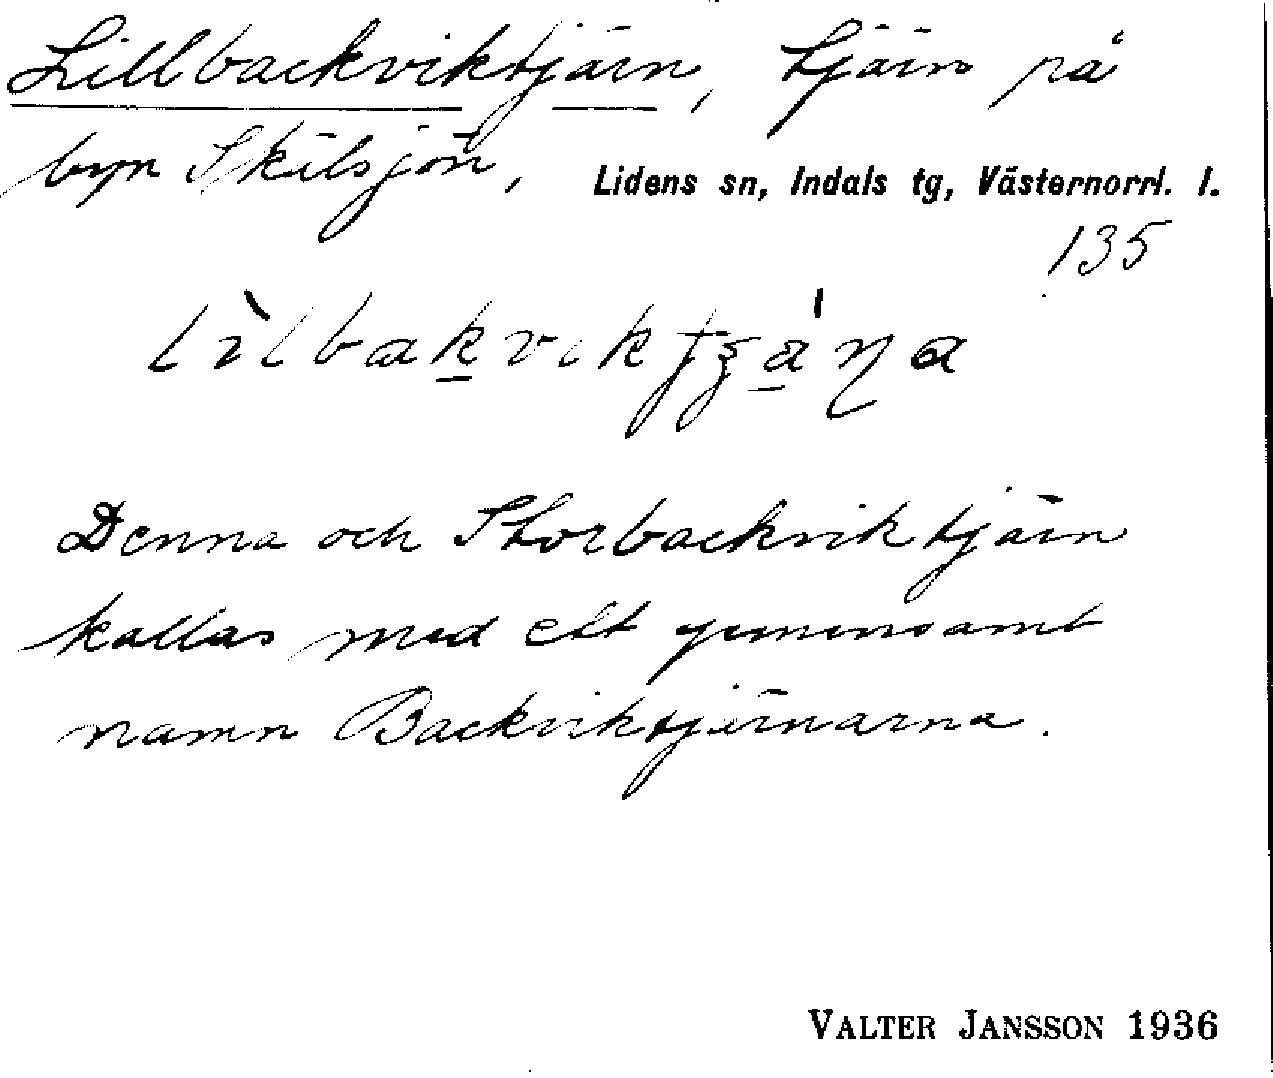 Lillbackviktjärn, tjärn på
byn Skilsjön, Lidens sn, Indals tg, Västernorrl. l.
135
Denna och Storbackviktjärn
kallas med ett gemensamt
namn Backviktjärnarna.
VALTER JANSSON 1936